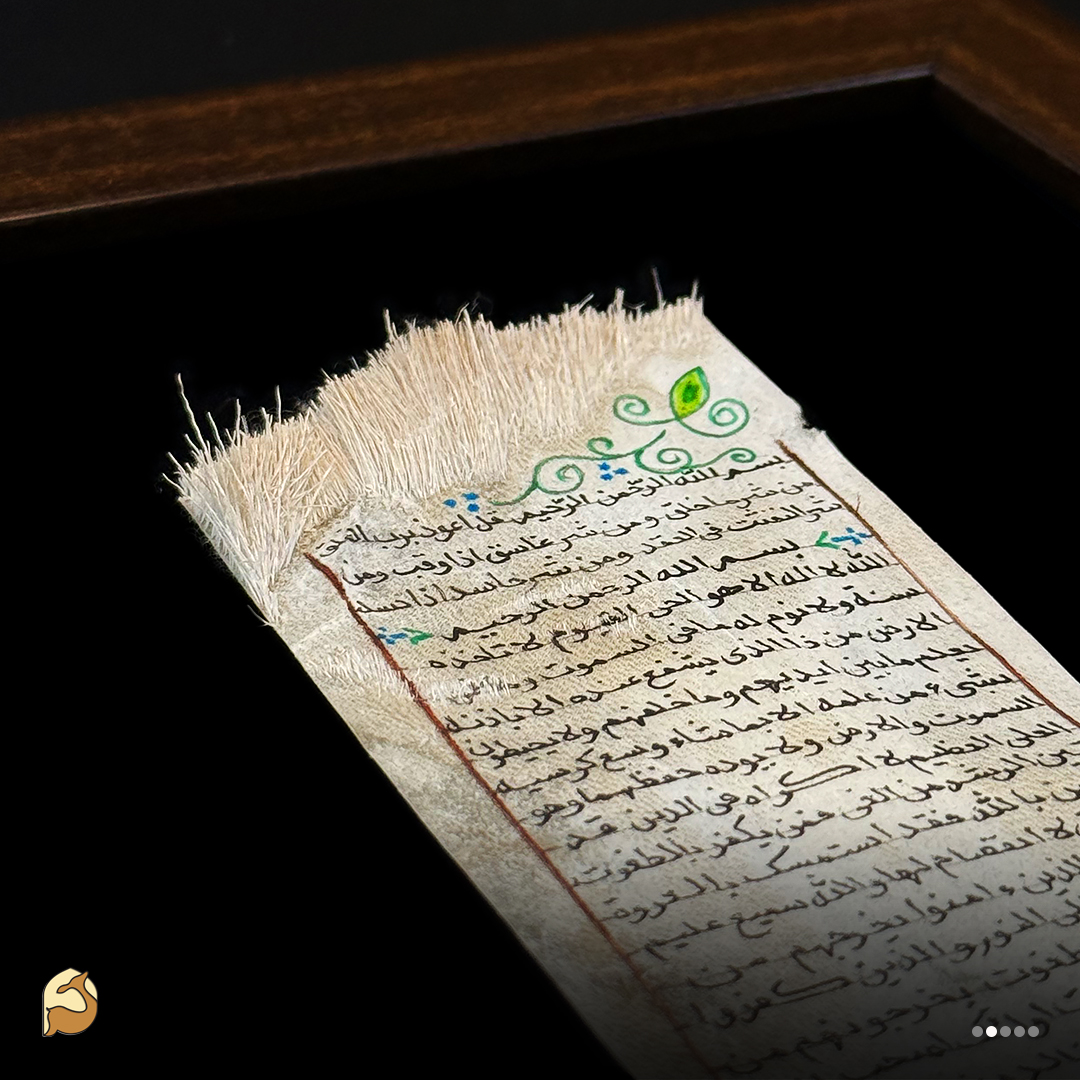 بسم الله الرحمن الرحيم قل اعوذ برب الفلق
من شر ما خلق ومن شر غاسق اذا وقب ومن
شر النفثت في العقد ومن شر حاسد اذا حسد
بسم الله الرحمن الرحيم
الله لا اله الا هو الحي القيوم لا تاخذه
سنة ولا نوم له ما في السموت وما في
الارض من ذا الذي يشفع عنده الا باذنه
يعلم ما بين ايديهم وما خلفهم ولا يحيطون
بشيء من علمه الا بما شاء وسع كرسيه
السموت والارض ولا يوده حفظهما وهو
العلي العظيم لا اكراه في الدين قد
تبين الرشد من الغي فمن يكفر بالطغوت
بالله فقد استمسك بالعروة
لا انفصام لها والله سميع عليم
الذين ءامنوا يخرجهم من
النور والذين كفروا
يخرجونهم من